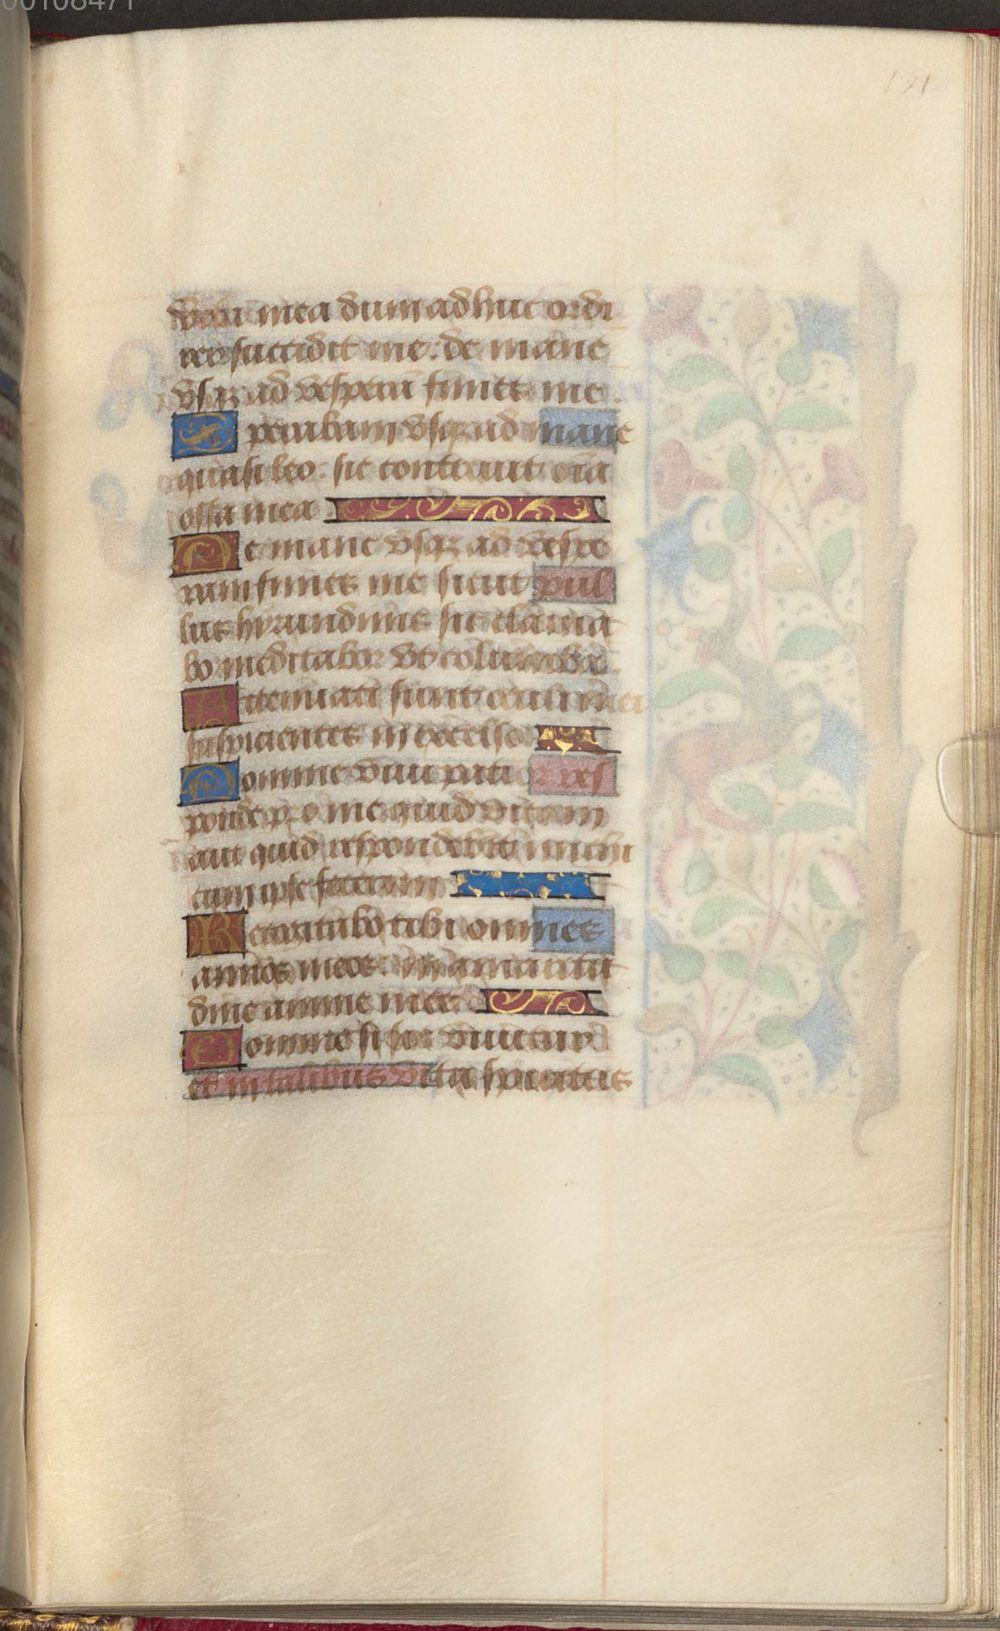 00108471
121
vita mea dum adhuc ordi
rer succidit me: de mane
vsqz ad vesperā finiet me.
Sperabam vsqz ad mane
quasi leo: sic contriuit oīa
ossa mea
De mane vsqz ad vespe
ram finies me sicut pul
lus hyrundinis sic clama
bo meditabor vt columba
Attenuati sunt oculi mei
suspicientes in excelso
Domine vim patior res
ponde pro me quid dicam
aut quid respondebit michi
cum ipse fecerim
Recogitabo tibi omnes
annos meos: in amaritu
dine anime mee
Domine si sic viuitur
et in talibus vita spiritus